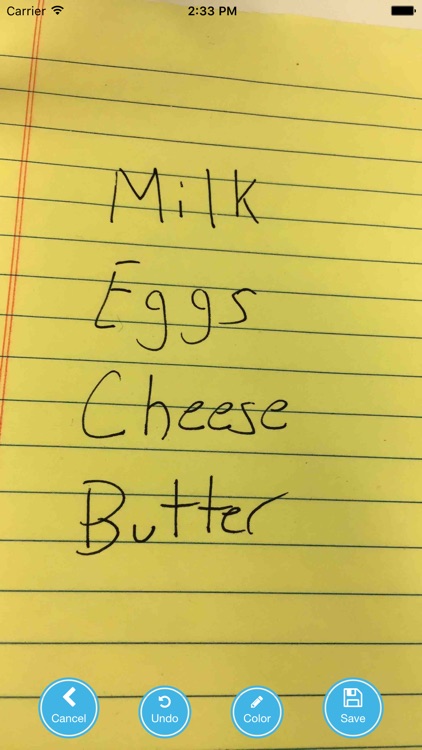 Carrier 2:33 PM
Milk
Eggs
Cheese
Butter
Cancel Undo Color Save